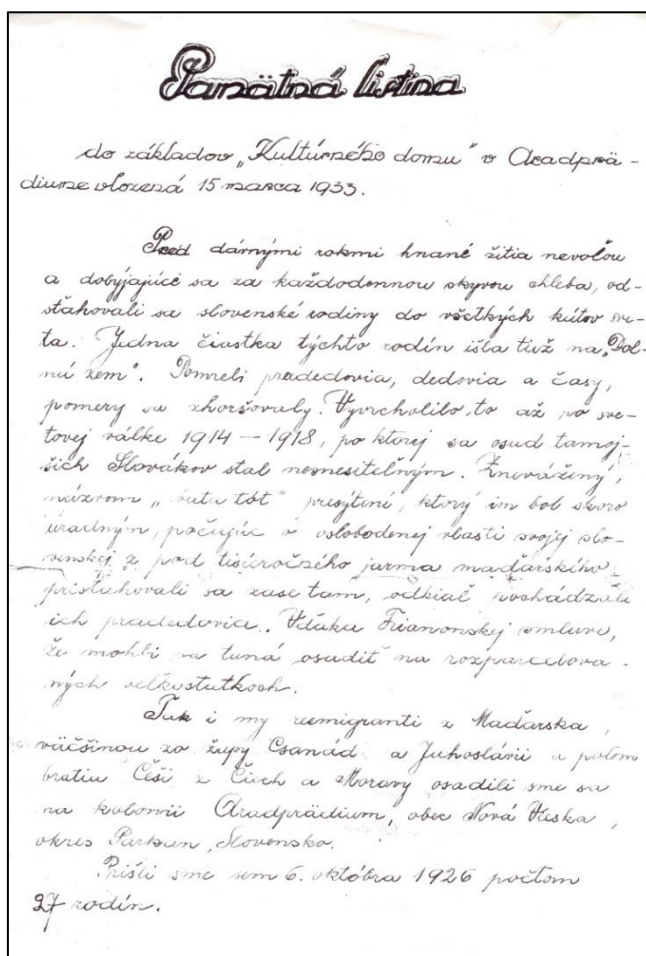 Pamätná listina
do základov „Kultúrného domu" v Aradprä-
diume vložená 15 marca 1933.
Pred dávnými rokmi hnané žitia nevoľou
a dobýjajúcé sa za každodennou skyvou chleba, od-
sťahovali sa slovenské rodiny do všetkých kútov sve-
ta. Jedna čiastka týchto rodín išla tiež na „Dol-
nú zem". Pomreli pradedovia, dedovia a časy,
pomery sa zhoršovaly. Vyvrcholilo to až po sve-
tovej válke 1914 — 1918, po ktorej sa osud tamoj-
ších Slovákov stal nesnesiteľným. Znevážený,
názvom „buta tót" presýtení, ktorý im bol skoro
úradným, počujúc o oslobodenej vlasti svojej slo-
venskej z pod tisícročného jarma maďarského
prisťahovali sa zase tam, odkiaľ pochádzali
ich pradedovia. Vďaka Trianonskej smluve,
že mohli sa tuná osadiť na rozparcelova-
ných veľkostatkoch.
Tak i my reemigranti z Maďarska,
väčšinou zo župy Csanád a Juhoslávii a potom
bratia Česi z Čiech a Moravy osadili sme sa
na kolonii Aradprädium, obec Nová Vieska,
okres Parkan, Slovensko.
Prišli sme sem 6. októbra 1926 počtom
27 rodín.